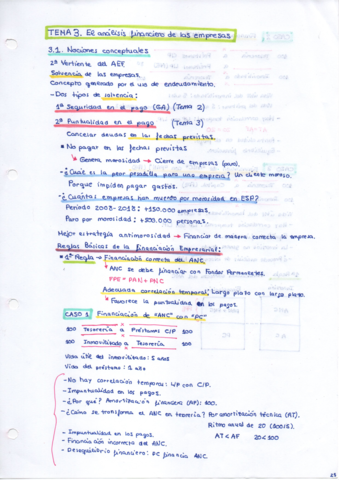 TEMA 3. El análisis financiero de las empresas
3.1. Nociones conceptuales
2ª Vertiente del AEF
Solvencia de las empresas.
Concepto generado por el uso de endeudamiento.
- Dos tipos de solvencia:
1ª Seguridad en el pago (GA) (Tema 2)
2ª Puntualidad en el pago (Tema 3)
Cancelar deudas en las fechas previstas.
* No pagar en las fechas previstas
↳ Genera morosidad → Cierre de empresas
- ¿Cuál es la peor pesadilla para una empresa? Un cliente moroso.
Porque impiden pagar gastos.
- ¿Cuántas empresas han muerto por morosidad en ESP?
Periodo 2008-2018: +150.000 empresas.
Paro por morosidad: +500.000 personas.
Mejor estrategia antimorosidad → Financiar de manera correcta la empresa.
Reglas Básicas de la Financiación Empresarial:
* 1ª Regla → Financiación correcta del ANC.
↳ ANC se debe financiar con Fondos Permanentes.
FPE = PAN + PNC
Adecuada correlación temporal: Largo plazo con largo plazo.
↳ Favorece la puntualidad en los pagos.
CASO 1 Financiación de "ANC" con "PC"
100 Tesorería a Préstamos C/P 100
100 Inmovilizado a Tesorería 100
Vida útil del inmovilizado: 5 años
Vida del préstamo: 1 año
- No hay correlación temporal: L/P con C/P.
- Impuntualidad en los pagos.
- ¿Por qué? Amortización financiera (AF): 100.
- ¿Cómo se transforma el ANC en tesorería? Por amortización técnica (AT).
Ritmo anual de 20 (100/5).
- Impuntualidad en los pagos. AT < AF 20 < 100
- Financiación incorrecta del ANC.
- Desequilibrio financiero: PC financia ANC.